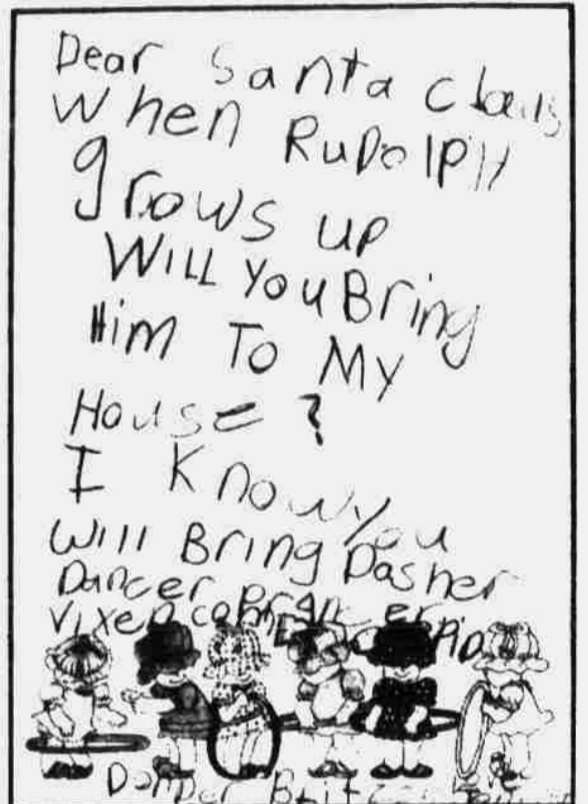 Dear Santa Claus
When RuDolPH
grows up
WiLL You Bring
Him To My
House ?
I Know You
Will Bring Dasher
Dancer Prancer
Vixen
Donner